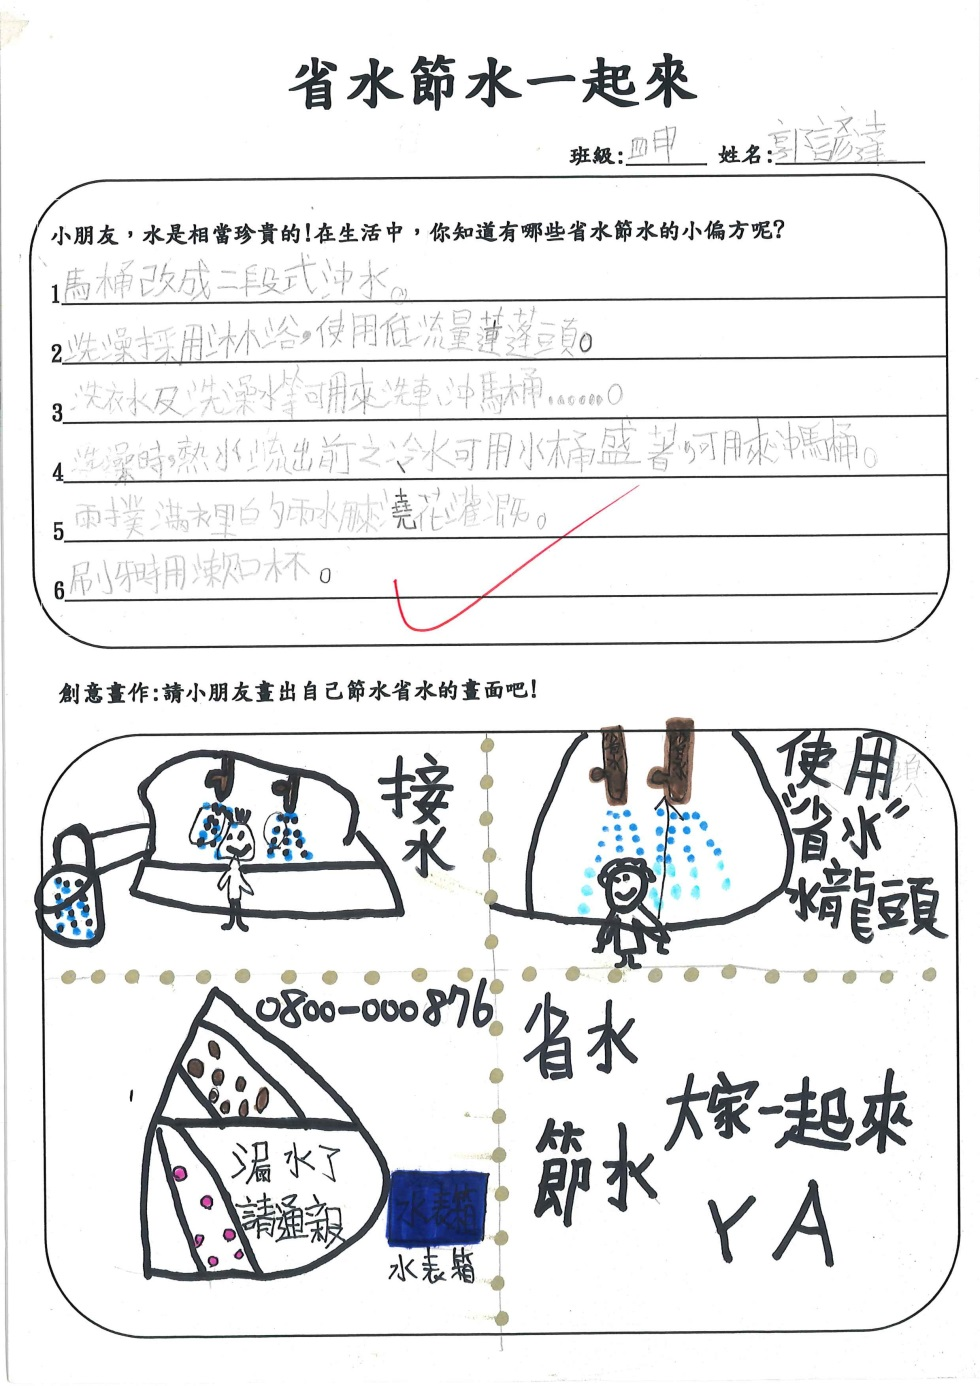 省水節水一起來
班級:四甲 姓名:郭諺達
小朋友，水是相當珍貴的!在生活中，你知道有哪些省水節水的小偏方呢?
1馬桶改成二段式沖水。
2洗澡採用淋浴，使用低流量蓮蓬頭。
3洗衣水及洗澡水等可用來洗車、沖馬桶……。
4洗澡時，熱水流出前之冷水可用水桶盛著，可用來沖馬桶。
5雨撲滿裡的雨水用來澆花灌溉。
6刷牙時用漱口杯。
創意畫作:請小朋友畫出自己節水省水的畫面吧!
接水
使用
"省水"
水龍頭
0800-000876
漏水了
請通報
水表箱
水表箱
省水
節水
大家一起來
YA